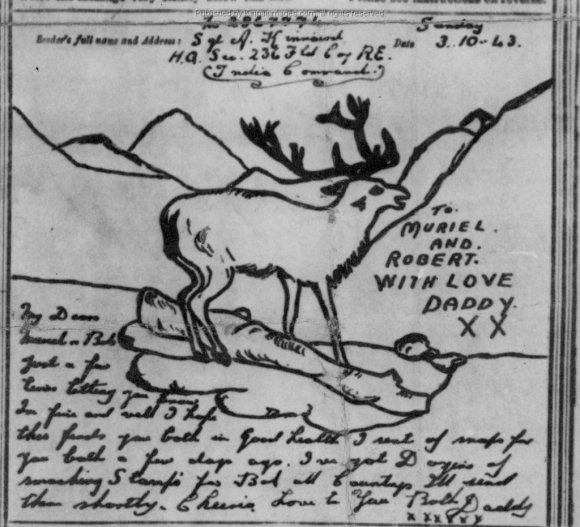 Sender's full name and Address: Sgt A. Kinnaird Date Sunday 3.10-43.
H.Q. Sec. 236 Fld Coy R.E.
(India Command.)
TO.
MURIEL.
AND.
ROBERT.
WITH LOVE
DADDY.
X X
My Dear
Muriel & Bob
Just a few
lines letting you
Im fine and well I hope
this finds you both in Good health I sent of snaps for
you both a few days ago. I've got Dozens of
smashing Stamps for Bob all Countrys Ill send
them shortly. Cheerio Love to You Both Daddy
X X X X X X